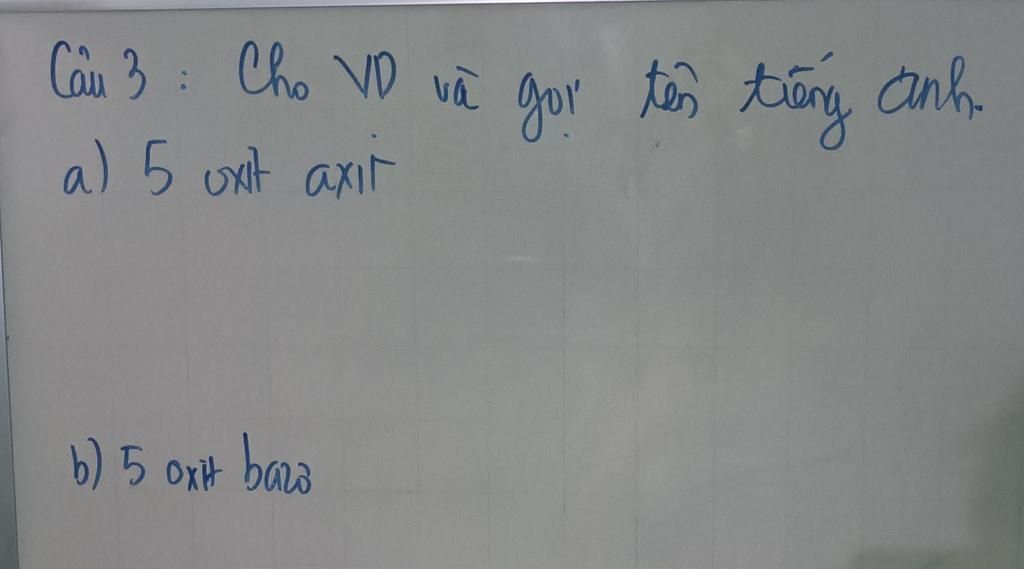 Câu 3 : Cho VD và gọi tên tiếng anh.
a) 5 oxit axit
b) 5 oxit bazơ